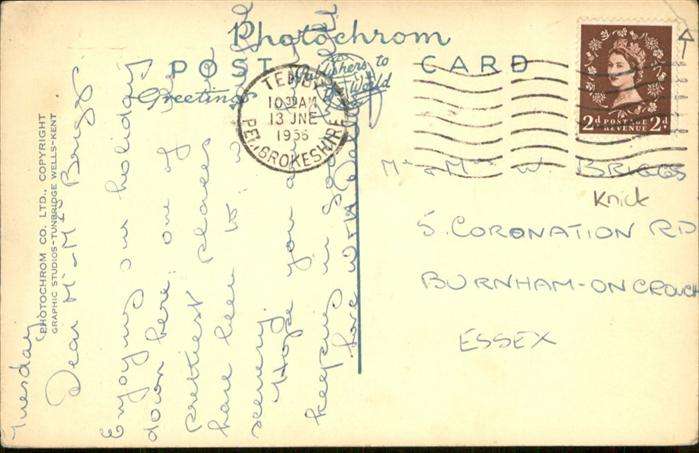 Photochrom
POST CARD
Greetings
Publishers to
the World
PHOTOCHROM CO. LTD., COPYRIGHT
GRAPHIC STUDIOS-TUNBRIDGE WELLS-KENT
TENBY
10 30 AM
13 JNE
1956
PEMBROKESHIRE
2d POSTAGE 2d
REVENUE
Tuesday
Dear Mr & Mrs Briggs.
Enjoying our holiday
down here. one of the
prettiest places we
have been to.
scenery.
Hope you are
keeping
love
Mr & Mrs W. BRIGGS
Knick
5. CORONATION RD
BURNHAM-ON CROUCH
ESSEX